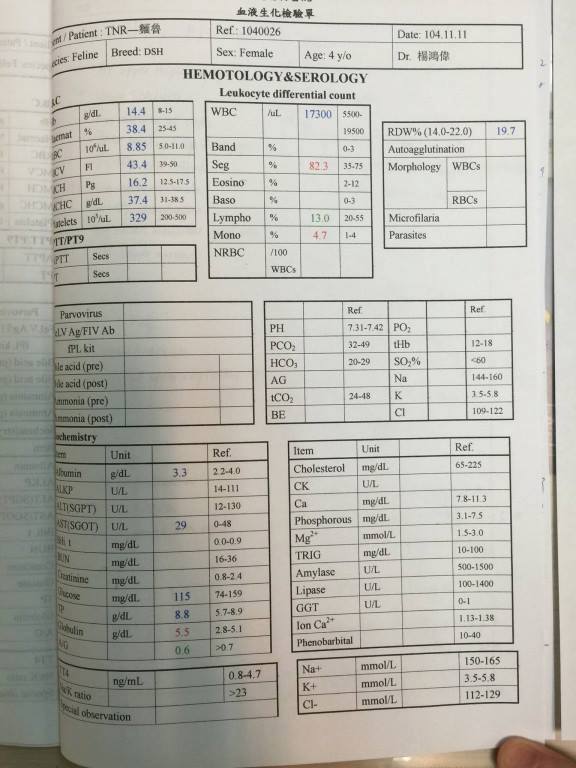 血液生化檢驗單
ent / Patient : TNR—麵魯 Ref.: 1040026 Date: 104.11.11
ecies: Feline Breed: DSH Sex: Female Age: 4 y/o Dr. 楊鴻偉
HEMOTOLOGY&SEROLOGY
Leukocyte differential count
g/dL 14.4 8-15
% 38.4 25-45
BC 10⁶/uL 8.85 5.0-11.0
CV Fl 43.4 39-50
CH Pg 16.2 12.5-17.5
CHC g/dL 37.4 31-38.5
atelets 10³/uL 329 200-500
TT/PT9
PTT Secs
T Secs
WBC /uL 17300 5500-19500
Band % 0-3
Seg % 82.3 35-75
Eosino % 2-12
Baso % 0-3
Lympho % 13.0 20-55
Mono % 4.7 1-4
NRBC /100 WBCs
RDW% (14.0-22.0) 19.7
Autoagglutination
Morphology WBCs
RBCs
Microfilaria
Parasites
Parvovirus
eLV Ag/FIV Ab
fPL kit
ile acid (pre)
ile acid (post)
mmonia (pre)
mmonia (post)
Ref. Ref.
PH 7.31-7.42 PO₂
PCO₂ 32-49 tHb 12-18
HCO₃ 20-29 SO₂% <60
AG Na 144-160
tCO₂ 24-48 K 3.5-5.8
BE Cl 109-122
ochemistry
tem Unit Ref.
lbumin g/dL 3.3 2.2-4.0
ALKP U/L 14-111
ALT(SGPT) U/L 12-130
AST(SGOT) U/L 29 0-48
mg/dL 0.0-0.9
BUN mg/dL 16-36
reatinine mg/dL 0.8-2.4
lucose mg/dL 115 74-159
TP g/dL 8.8 5.7-8.9
lobulin g/dL 5.5 2.8-5.1
A/G 0.6 >0.7
T4 ng/mL 0.8-4.7
a/K ratio >23
pecial observation
Item Unit Ref.
Cholesterol mg/dL 65-225
CK U/L
Ca mg/dL 7.8-11.3
Phosphorous mg/dL 3.1-7.5
Mg²⁺ mmol/L 1.5-3.0
TRIG mg/dL 10-100
Amylase U/L 500-1500
Lipase U/L 100-1400
GGT U/L 0-1
Ion Ca²⁺ 1.13-1.38
Phenobarbital 10-40
Na+ mmol/L 150-165
K+ mmol/L 3.5-5.8
Cl- mmol/L 112-129